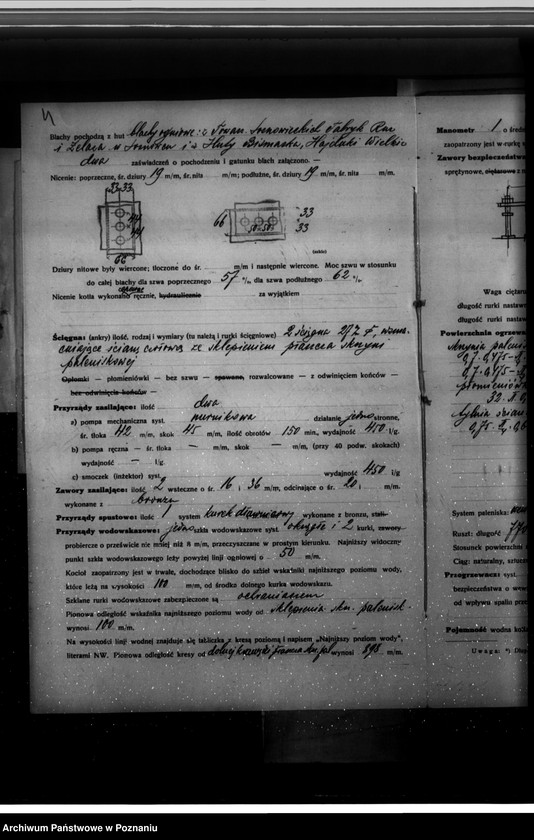 4
Blachy pochodzą z hut blachy ogniowe: z Towarz. Sosnowieckich Fabryk Rur
i Żelaza w Sosnowcu i z Huty Bismarka, Hajduki Wielkie
dwa zaświadczeń o pochodzeniu i gatunku blach załączono. —
Nicenie: poprzeczne, śr. dziury 19 m/m, śr. nita m/m; podłużne, śr. dziury 19 m/m, śr. nita — m/m.
33 33
44
44
66
66
50 50
33
33
(szkic)
Dziury nitowe były wiercone; tłoczone do śr. m/m i następnie wiercone. Moc szwu w stosunku
do całej blachy dla szwu poprzecznego 57 %, dla szwu podłużnego 62 %.
Nicenie kotła wykonano ręcznie, hydraulicznie - za wyjątkiem
Ściągna: (ankry) ilość, rodzaj i wymiary (tu należą i rurki ściągniowe) 2 ściągna
ścianę ze sklepieniem skrzyni
paleniskowej
Opłomki — płomieniówki — bez szwu — spawane, rozwalcowane — z odwinięciem końców —
bez odwinięcia końców —
Przyrządy zasilające: ilość dwa
a) pompa mechaniczna syst. nurnikowa działanie jednostronne,
śr. tłoka 42 m/m, skok 45 m/m, ilość obrotów 150 min., wydajność 450 l/g
b) pompa ręczna — śr. tłoka — m/m, skok — m/m, (przy 40 podw. skokach)
wydajność — l/g.
c) smoczek (inżektor) syst. wydajność 450 l/g
Zawory zasilające: ilość 2 wsteczne o śr. 16 i 36 m/m, odcinające o śr. 20 i m/m.
wykonane z bronzu
Przyrządy spustowe: ilość 1 system kurek dławnicowy wykonane z bronzu, stali
Przyrządy wodowskazowe: jedno szkła wodowskazowe syst. okrągłe i 2 kurki, zawory
probiercze o prześwicie nie mniej niż 8 m/m, przeczyszczane w prostym kierunku. Najniższy widoczny
punkt szkła wodowskazowego leży powyżej linji ogniowej o 50 m/m.
Kocioł zaopatrzony jest w trwałe, dochodzące blisko do szkieł wskaźniki najniższego poziomu wody,
które leżą na wysokości 100 m/m, od środka dolnego kurka wodowskazu.
Szklane rurki wodowskazowe zabezpieczone są ochraniaczem
Pionowa odległość wskaźnika najniższego poziomu wody od sklepienia skrz. palenisk.
wynosi 100 m/m.
Na wysokości linji wodnej znajduje się tabliczka z kresą poziomą i napisem „Najniższy poziom wody",
literami NW. Pionowa odległość kresy od dolnej wynosi 898 m/m.
Manometr 1 o średn
zaopatrzony jest w rurkę s
Zawory bezpieczeństwa
sprężynowe, ciężarowe z n
Waga ciężaru
długość rurki nastaw
długość rurki nastaw
Powierzchnia ogrzewa
System paleniska:
Ruszt: długość 770
Stosunek powierzchni
Ciąg: naturalny, sztuczn
Przegrzewacz: syst.
bezpieczeństwa o wew
od wpływu spalin prze
Pojemność wodna kotła
Uwaga: *) Długo
Archiwum Państwowe w Poznaniu